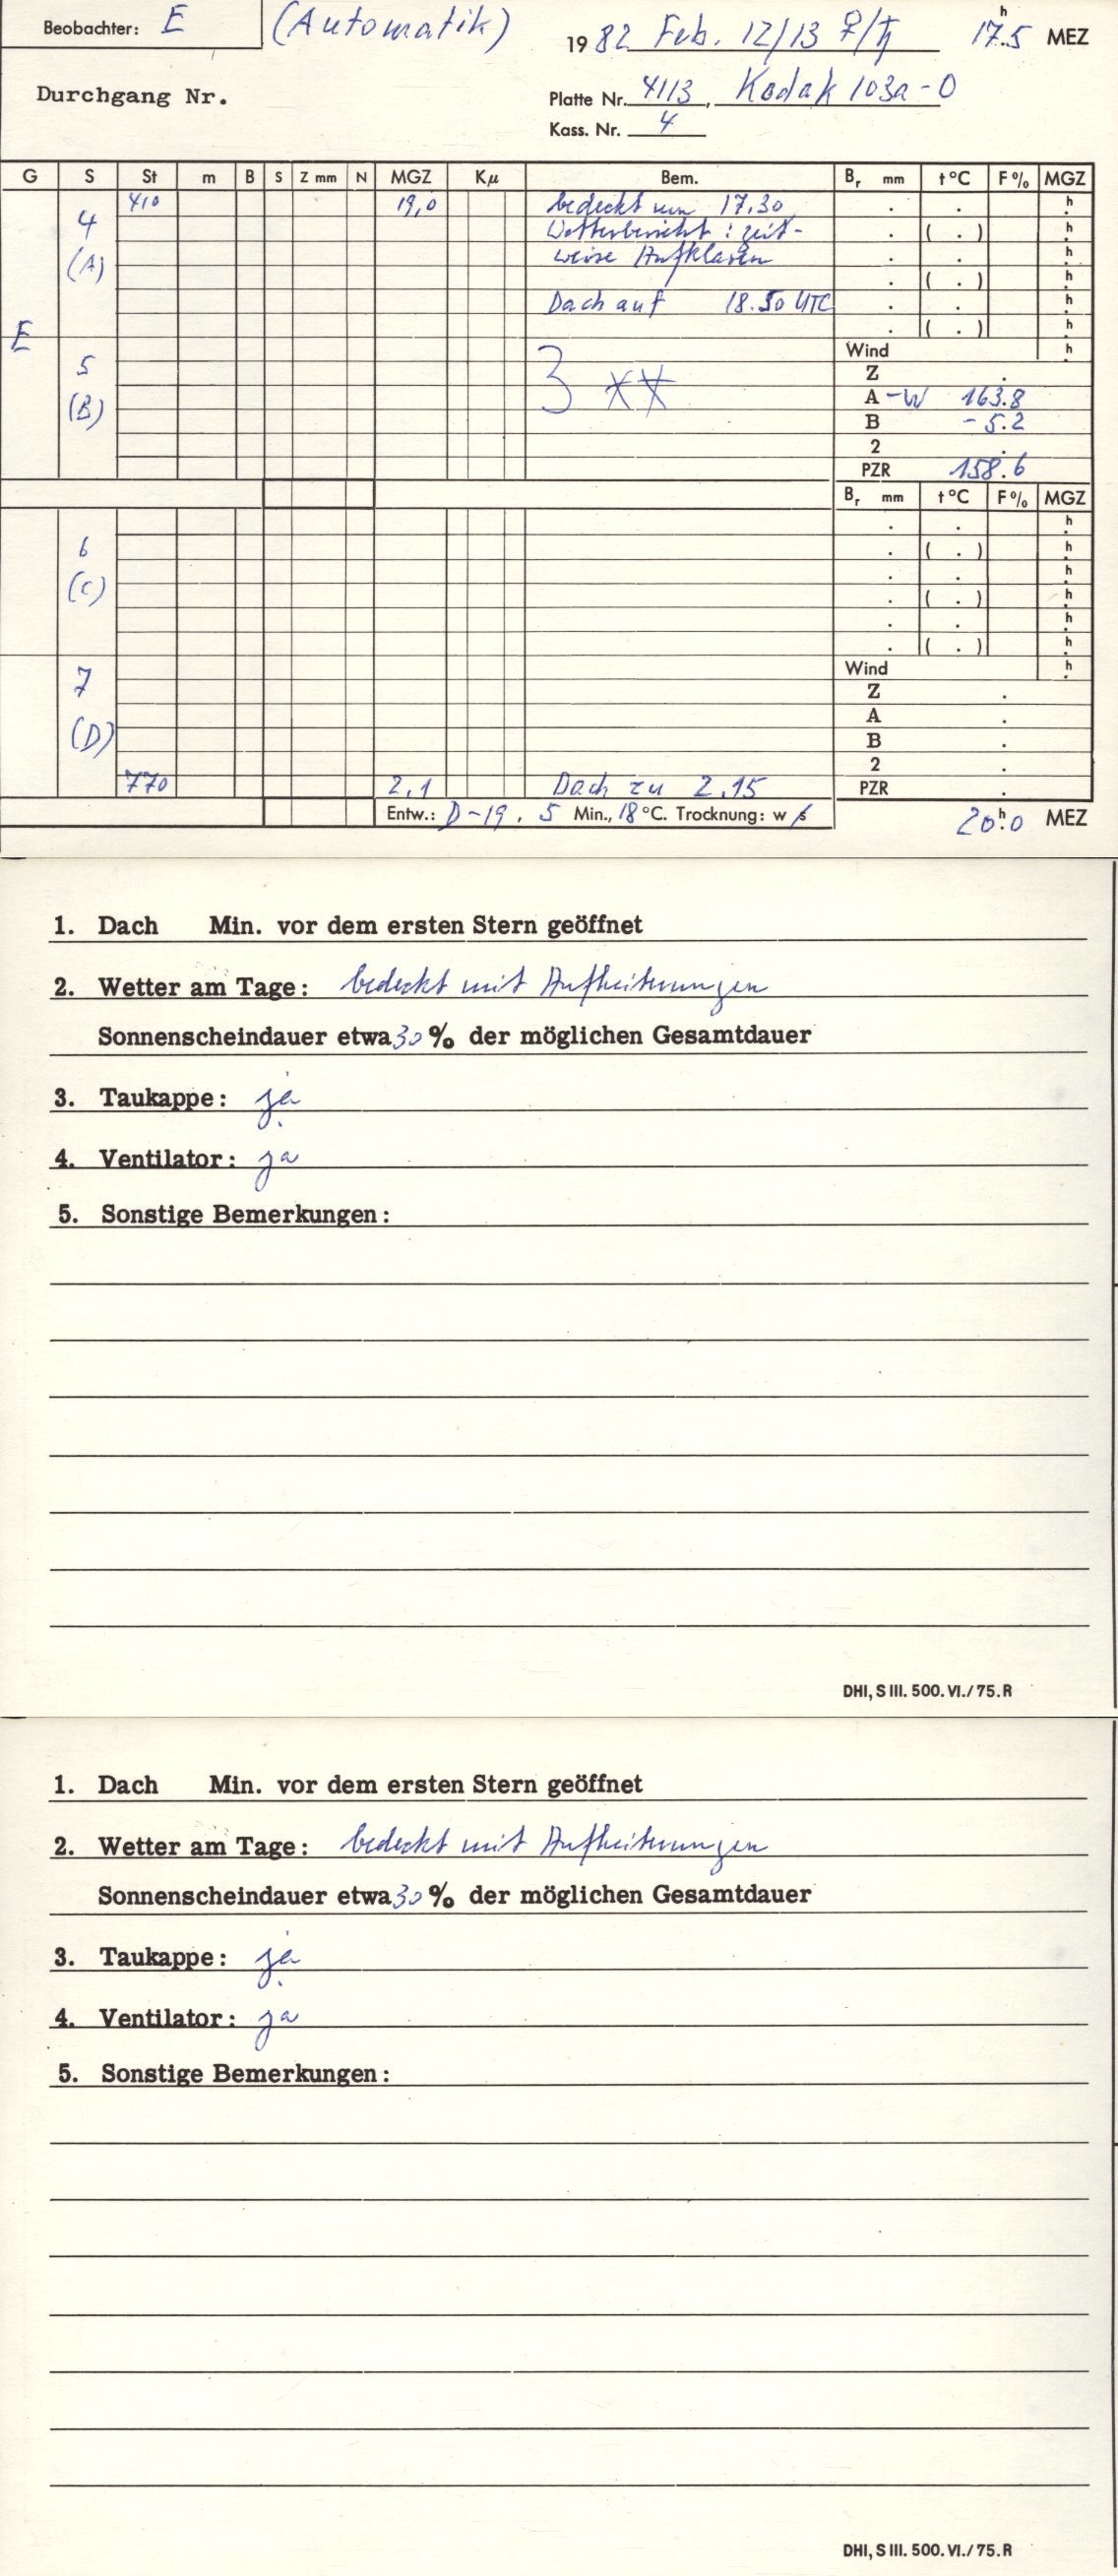 Beobachter: E (Automatik) 1982 Feb. 12/13 ♀/♄ 17.5 h MEZ
Durchgang Nr. Platte Nr. 4113, Kodak 103a-O
Kass. Nr. 4
G S St m B S Z mm N MGZ Kμ Bem. Br mm t°C F% MGZ
410 19,0 bedeckt um 17.30 . . h
4 Wetterbericht: zeit- . ( . ) h
(A) weise Aufklaren . . h
. ( . ) h
Dach auf 18.50 UTC . . h
E . ( . ) h
Wind h
5 3 ** Z .
A -W 163.8
(B) B -5.2
2 .
PZR 158.6
Br mm t°C F% MGZ
. . h
6 . ( . ) h
. . h
(C) . ( . ) h
. . h
. ( . ) h
Wind h
7 Z .
A .
(D) B .
2 .
770 2,1 Dach zu 2.15 PZR .
Entw.: D-19, 5 Min., 18°C. Trocknung: w/k 20.0 h MEZ
1. Dach Min. vor dem ersten Stern geöffnet
2. Wetter am Tage: bedeckt mit Aufheiterungen
Sonnenscheindauer etwa 30% der möglichen Gesamtdauer
3. Taukappe: ja
4. Ventilator: ja
5. Sonstige Bemerkungen:
DHI, S III. 500. VI./75. R
1. Dach Min. vor dem ersten Stern geöffnet
2. Wetter am Tage: bedeckt mit Aufheiterungen
Sonnenscheindauer etwa 30% der möglichen Gesamtdauer
3. Taukappe: ja
4. Ventilator: ja
5. Sonstige Bemerkungen:
DHI, S III. 500. VI./75. R